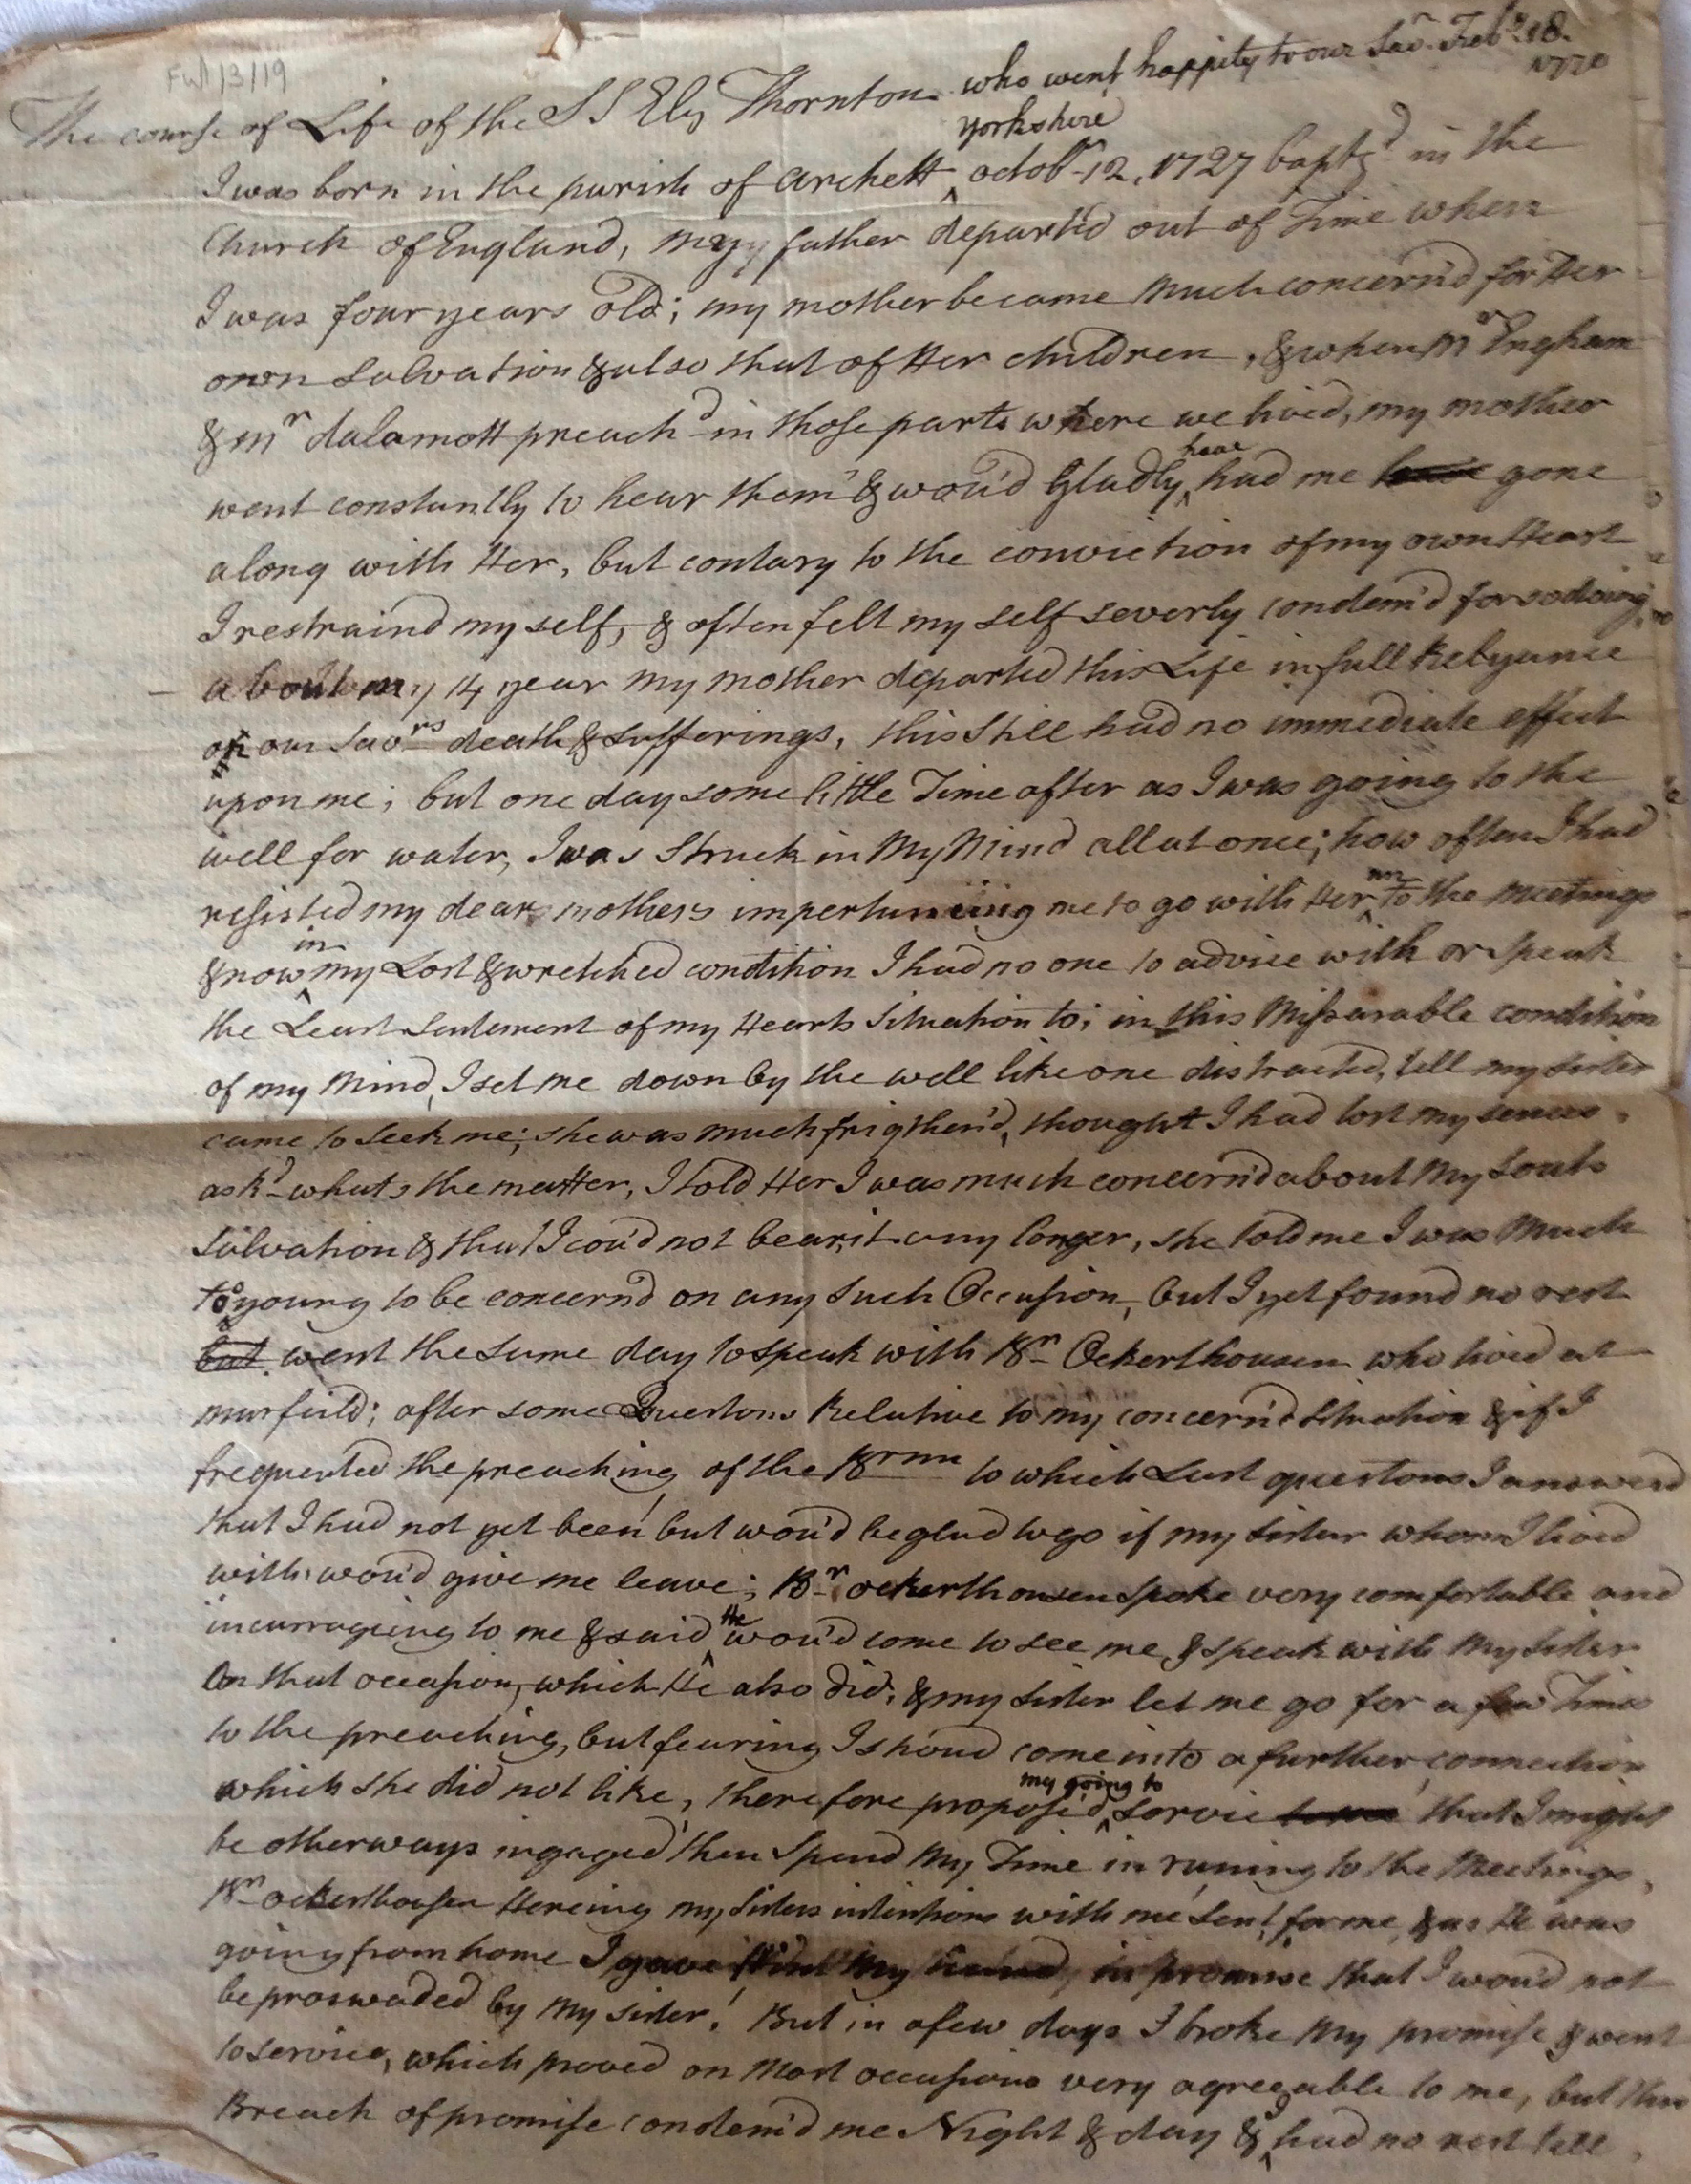 Ful/3/19
The course of Life of the S S Eliz Thornton who went happily to our Savr Febr 18. 1770
Yorkshire
I was born in the parish of Archett ^ octobr 12, 1727 baptzd in the
Church of England, my father departed out of Time when
I was four years old; my mother became Much concern'd for Her
own Salvation & also that of Her children, & when Mr Ingham
& Mr dalamott preachd in those parts where we lived, my mother
went constantly to hear them & wou'd Gladly ^have had me have gone
along with Her, but contary to the conviction of my own Heart
I restraind my self, & often felt my self severly condem'd for so doing,
about my 14 year my mother departed this Life in full Relyance
on our Savrs death & sufferings, this Still had no immediate effect
upon me; but one day some little Time after as I was going to the
well for water, I was Struck in My Mind all at once; how often I had
resisted my dear mothers impertuneing me to go with Her to the Meetings
& now ^in my Lost & wretched condition I had no one to advice with or speak
the Least Sentement of my Hearts Situation to; in this Missarable condition
of my Mind, I set me down by the well like one distracted, till my sister
came to Seek me; she was much frigthen'd, thought I had lost my sences,
askd whats the matter, I told Her I was much concern'd about My Souls
Salvation & that I cou'd not bear it any longer, she told me I was Much
to young to be concern'd on any such Occasion, but I yet found no rest
but went the same day to speak with Br Ockerthousen who lived at
murfeild; after some Questons Relative to my concern'd Situation & if I
frequented the preaching of the Brnn to which Last questons I answerd
that I had not yet been but wou'd be glad to go if my Sister whom I lived
with wou'd give me leave; Br ockerthousen spoke very comfortable and
incurrageing to me & said ^He wou'd come to see me & speak with My Sister
On that occasion, which He also did, & my Sister let me go for a few Times
to the preaching, but fearing I shoud come into a further connection
which she did not like, therefore propose'd ^my going to Service that I might
be otherways ingaged then Spend My Time in runing to the Meetings,
Br ockerthousen Hereing my Sisters intentions with me Sent for me, & as He was
going from home I gave Him My Hand, in promise that I wou'd not
be proswaded by My Sister! But in a few days I broke My promise & went
to service, which proved on Most occasions very agreeable to me, but this
Breach of promise condem'd me Night & day & ^I had no rest till